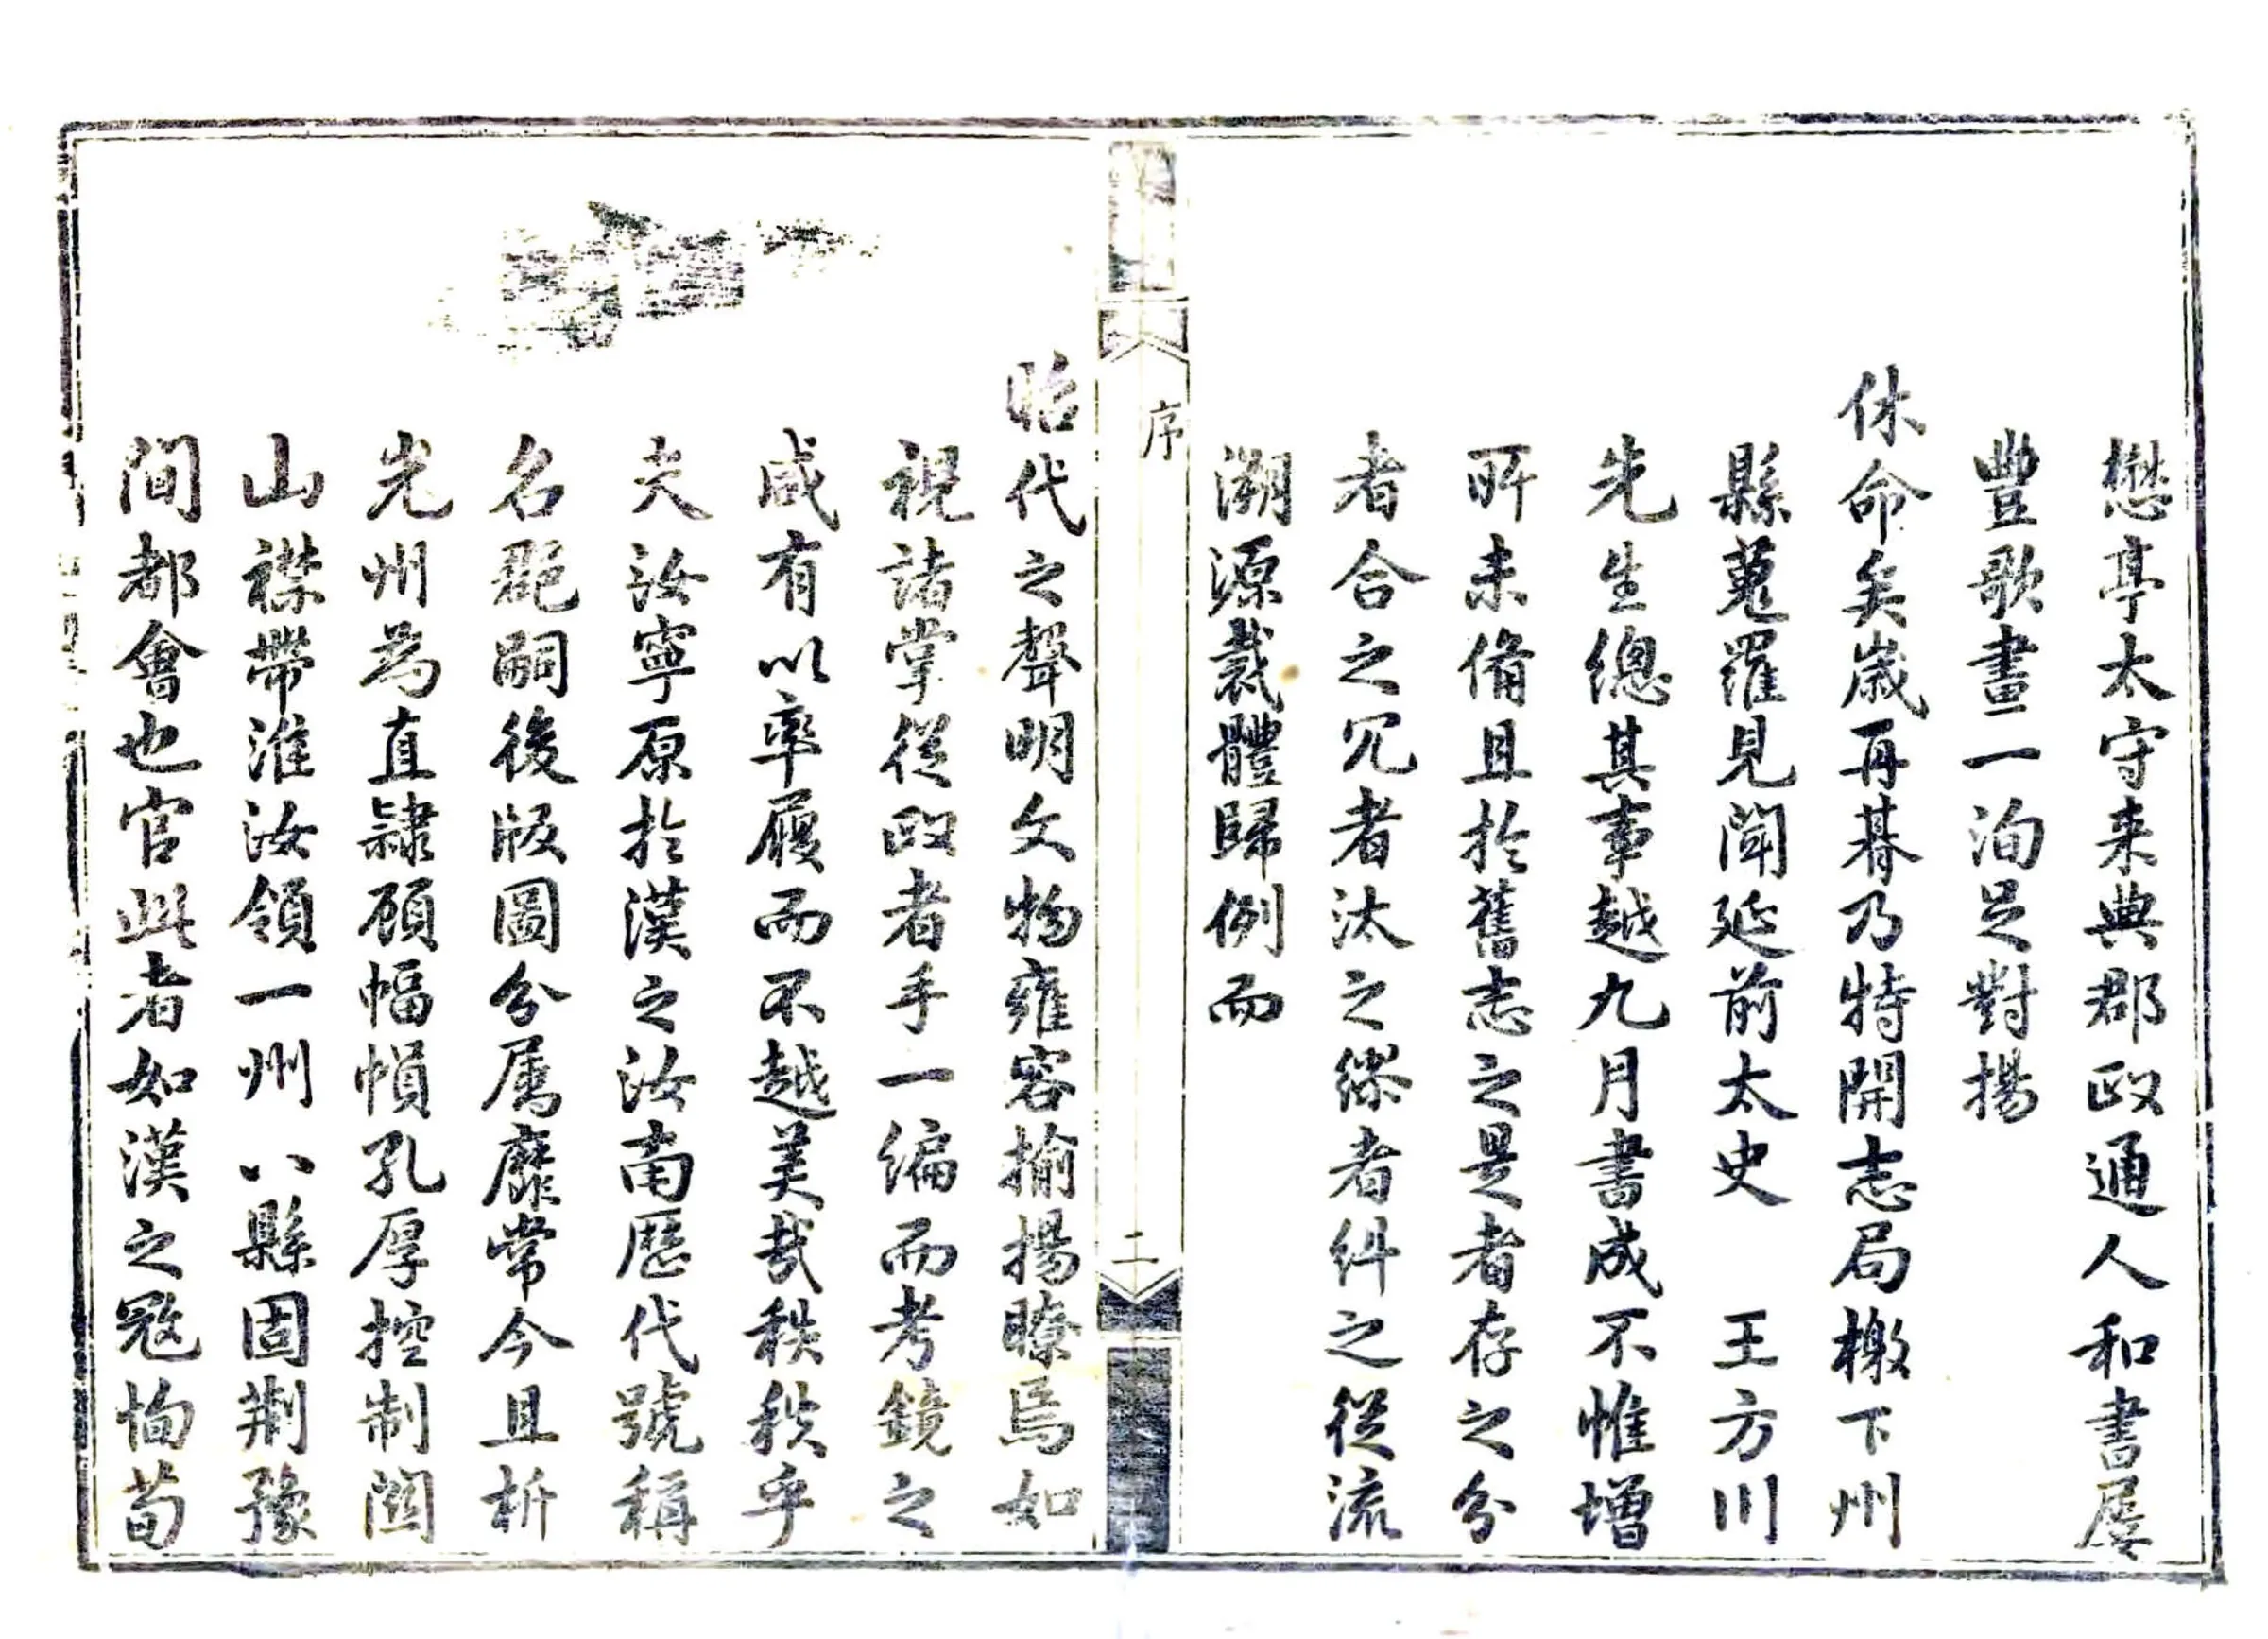 懋亭太守来典郡政通人和書屡
豐歌畫一洵足對揚
休命矣歳再朞乃特開志局檄下州
縣蒐羅見聞延前太史　王方川
先生總其事越九月書成不惟增
所未備且扵舊志之是者存之分
者合之冗者汰之繆者糾之從流
溯源裁體歸例而
序
二
昭代之聲明文物雍容揄揚瞭焉如
視諸掌從政者手一编而考鏡之
咸有以率履而不越美哉秩秩乎
夫汝寧原扵漢之汝南歷代號稱
名郡嗣後版圖分属靡常今且析
光州為直隷顧幅幀孔厚控制関
山襟帶淮汝領一州八縣固荆豫
間都會也官此者如漢之冦恂荀